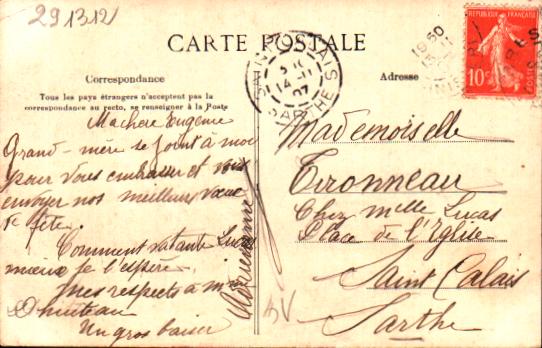 291312
CARTE POSTALE
Correspondance
Tous les pays étrangers n'acceptent pas la
correspondance au recto, se renseigner à la Poste
Ma chère Eugénie
Grand-mère se joint à moi
pour vous embrasser et vous
envoyer nos meilleurs vœux
de fête.
Comment va tante Lucas
mieux je l'espère.
Mes respects à mr
Dhuiteau
Un gros baiser
Adresse
SAINT-CALAIS
14 -11
07
SARTHE
REPUBLIQUE FRANÇAISE
10c
POSTES
Mademoiselle
Tironneau
Chez Mlle Lucas
Place de l'Eglise
Saint Calais
Sarthe